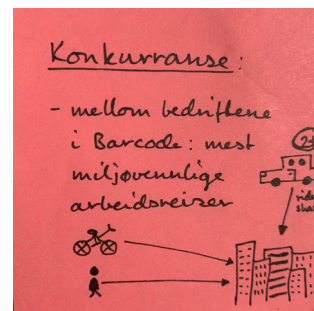 Konkurranse:
- mellom bedriftene
i Barcode: mest
miljøvennlige
arbeidsreiser